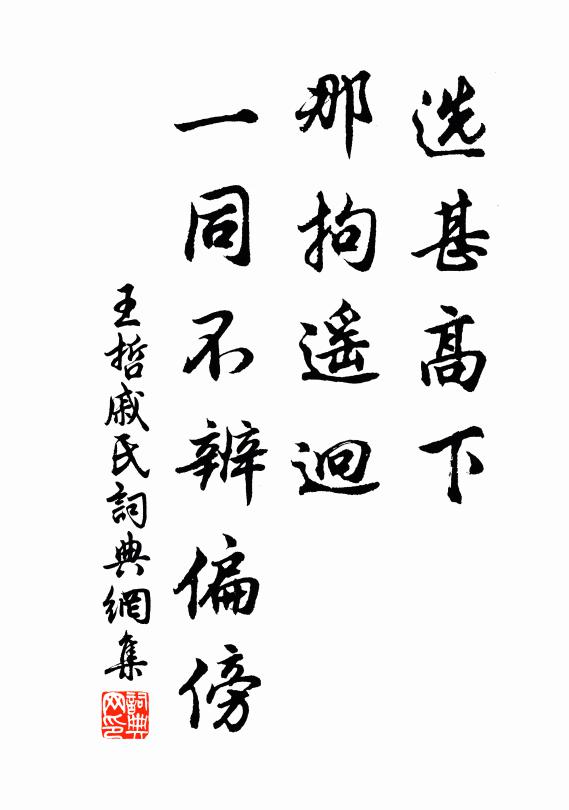 选甚高下
那拘遥迥
一同不辨偏傍
王哲戚氏詞典網集
詞典网印